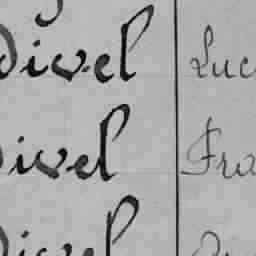 divel Luc
divel Fra
divel